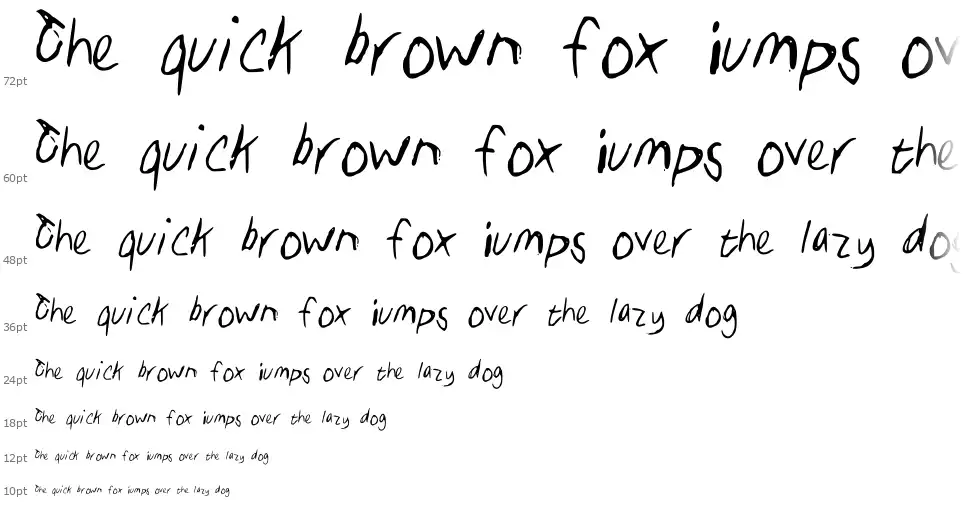 The quick brown fox iumps ov
72pt
The quick brown fox iumps over the
60pt
The quick brown fox iumps over the lazy dog
48pt
The quick brown fox iumps over the lazy dog
36pt
The quick brown fox iumps over the lazy dog
24pt
The quick brown fox iumps over the lazy dog
18pt
The quick brown fox iumps over the lazy dog
12pt
The quick brown fox iumps over the lazy dog
10pt